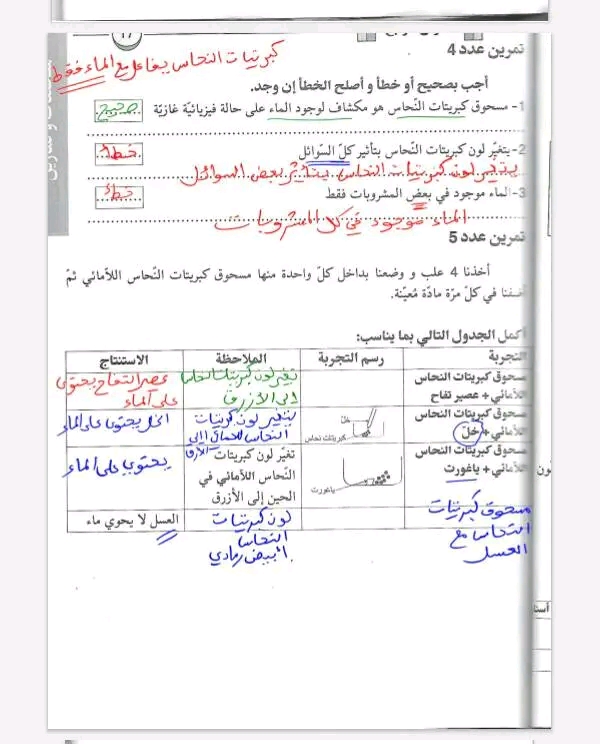 تمرين عدد 4
كبرتيات النحاس يتفاعل مع الماء فقط
أجب بصحيح أو خطأ و أصلح الخطأ إن وجد.
1- مسحوق كبريتات النّحاس هو مكشاف لوجود الماء على حالة فيزيائيّة غازيّة
صحيح
2- يتغيّر لون كبريتات النّحاس بتأثير كلّ السّوائل
خطأ
يتغير لون كبرتيات النحاس بتأثير بعض السوائل
3- الماء موجود في بعض المشروبات فقط
خطأ
الماء موجود في كل المشروبات
تمرين عدد 5
أخذنا 4 علب و وضعنا بداخل كلّ واحدة منها مسحوق كبريتات النّحاس اللاّمائي ثمّ
أضفنا في كلّ مرّة مادّة مُعيّنة.
أكمل الجدول التالي بما يناسب:
التجربة
رسم التجربة
الملاحظة
الاستنتاج
مسحوق كبريتات النحاس
اللاّمائي + عصير تفاح
تغير لون كبريتات النحاس
إلى الأزرق
عصير التفاح يحتوي
على الماء
مسحوق كبريتات النحاس
اللاّمائي + خلّ
خلّ
كبريتات نحاس
يتغير لون كبرتيات
الخل يحتوي على الماء
مسحوق كبريتات النحاس
اللاّمائي + ياغورت
ياغورت
تغيّر لون كبريتات
النّحاس اللاّمائي في
الحين إلى الأزرق
يحتوي على الماء
مسحوق كبرتيات
النحاس مع
العسل
لون كبرتيات
النحاس
أبيض رمادي
العسل لا يحوي ماء